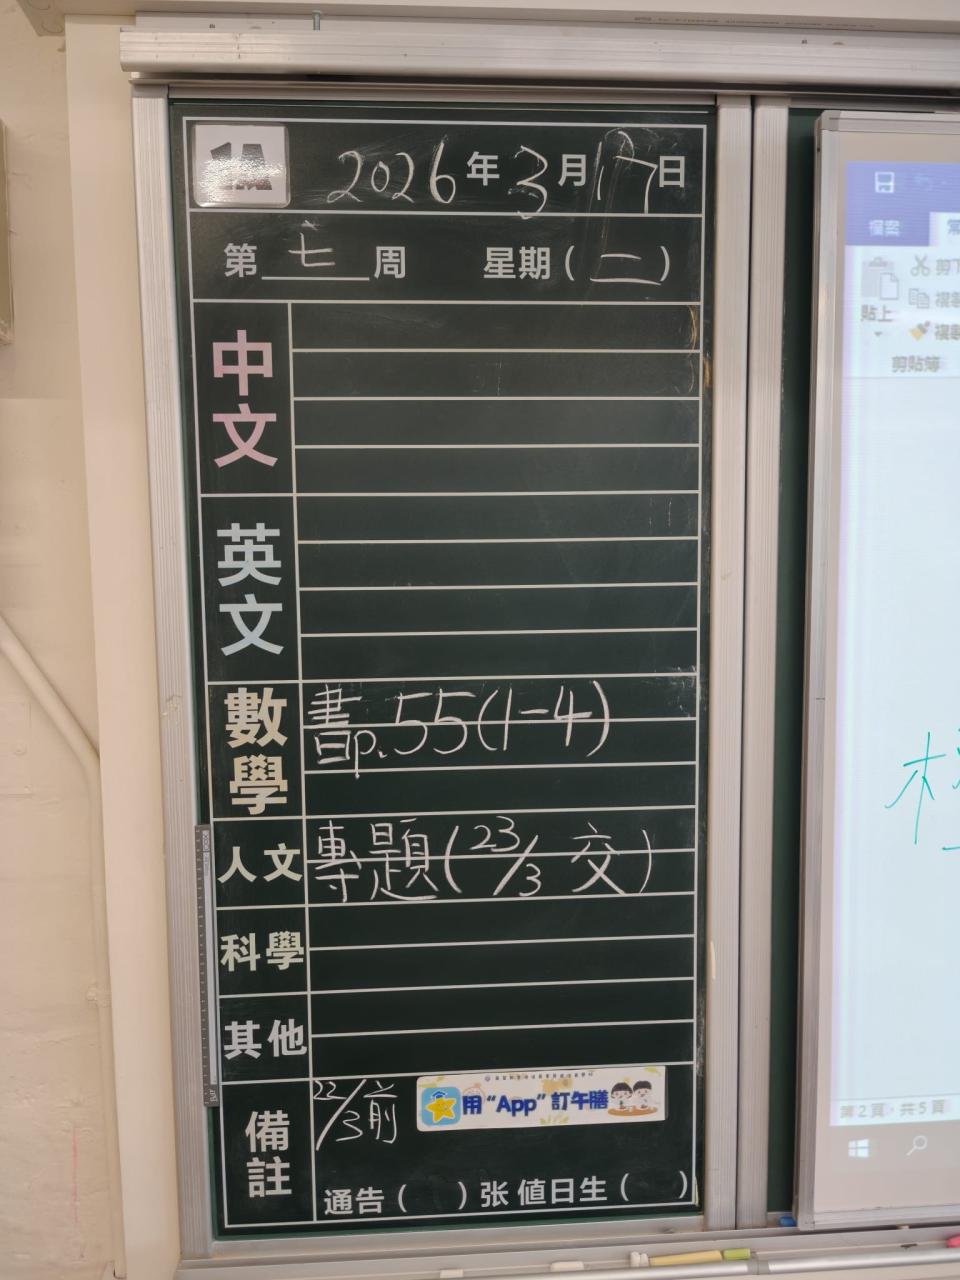 1A 2026年3月17日
第七周 星期(二)
中文
英文
數學 書p.55(1-4)
人文 專題(23/3交)
科學
其他
備註 22/3前
用"App"訂午膳
通告( )张 值日生( )
檔案
剪下
貼上
剪貼簿
第2頁，共5頁